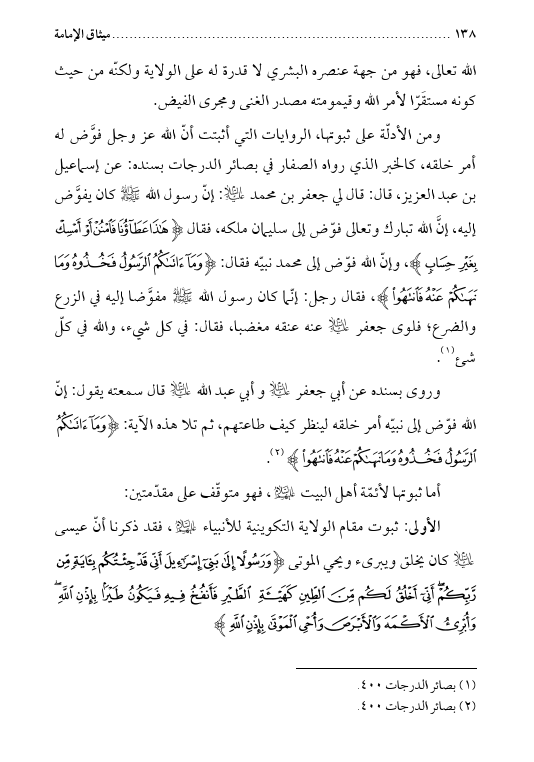 ١٣٨ .......................................................................... ميثاق الإمامة
الله تعالى، فهو من جهة عنصره البشري لا قدرة له على الولاية ولكنّه من حيث
كونه مستقَرّا لأمر الله وقيمومته مصدر الغنى ومجرى الفيض.
ومن الأدلّة على ثبوتها، الروايات التي أثبتت أنّ الله عز وجل فوَّض له
أمر خلقه، كالخبر الذي رواه الصفار في بصائر الدرجات بسنده: عن إسماعيل
بن عبد العزيز، قال: قال لي جعفر بن محمد عليه السلام: إنّ رسول الله ﷺ كان يفوَّض
إليه، إنَّ الله تبارك وتعالى فوّض إلى سليمان ملكه، فقال ﴿هَٰذَا عَطَآؤُنَا فَٱمْنُنْ أَوْ أَمْسِكْ
بِغَيْرِ حِسَابٍ﴾، وإنّ الله فوّض إلى محمد نبيّه فقال: ﴿وَمَآ ءَاتَىٰكُمُ ٱلرَّسُولُ فَخُذُوهُ وَمَا
نَهَىٰكُمْ عَنْهُ فَٱنتَهُوا۟﴾، فقال رجل: إنّما كان رسول الله ﷺ مفوَّضا إليه في الزرع
والضرع؛ فلوى جعفر عليه السلام عنه عنقه مغضبا، فقال: في كل شيء، والله في كلّ
شئ(١).
وروى بسنده عن أبي جعفر عليه السلام و أبي عبد الله عليه السلام قال سمعته يقول: إنّ
الله فوّض إلى نبيّه أمر خلقه لينظر كيف طاعتهم، ثم تلا هذه الآية: ﴿وَمَآ ءَاتَىٰكُمُ
ٱلرَّسُولُ فَخُذُوهُ وَمَا نَهَىٰكُمْ عَنْهُ فَٱنتَهُوا۟﴾(٢).
أما ثبوتها لأئمّة أهل البيت عليهم السلام، فهو متوقّف على مقدّمتين:
الأولى: ثبوت مقام الولاية التكوينية للأنبياء عليهم السلام، فقد ذكرنا أنّ عيسى
عليه السلام كان يخلق ويبرىء ويحي الموتى ﴿وَرَسُولًا إِلَىٰ بَنِىٓ إِسْرَٰٓءِيلَ أَنِّى قَدْ جِئْتُكُم بِـَٔايَةٍ مِّن
رَّبِّكُمْ ۖ أَنِّىٓ أَخْلُقُ لَكُم مِّنَ ٱلطِّينِ كَهَيْـَٔةِ ٱلطَّيْرِ فَأَنفُخُ فِيهِ فَيَكُونُ طَيْرًۢا بِإِذْنِ ٱللَّهِ ۖ
وَأُبْرِئُ ٱلْأَكْمَهَ وَٱلْأَبْرَصَ وَأُحْىِ ٱلْمَوْتَىٰ بِإِذْنِ ٱللَّهِ﴾
(١) بصائر الدرجات ٤٠٠.
(٢) بصائر الدرجات ٤٠٠.